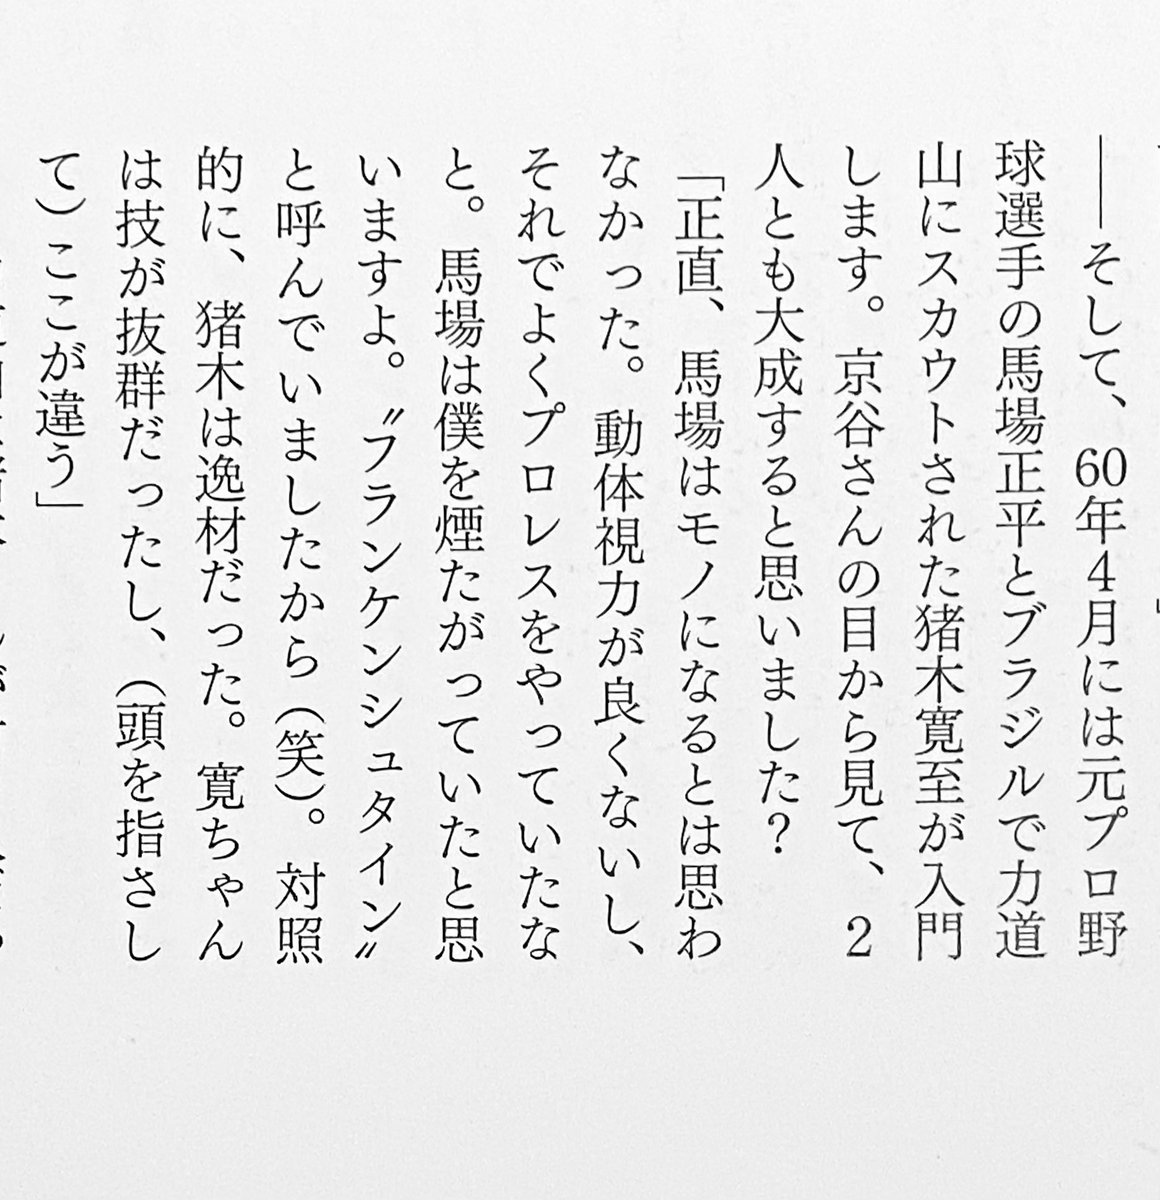 ――そして、60年4月には元プロ野
球選手の馬場正平とブラジルで力道
山にスカウトされた猪木寛至が入門
します。京谷さんの目から見て、2
人とも大成すると思いました？
「正直、馬場はモノになるとは思わ
なかった。動体視力が良くないし、
それでよくプロレスをやっていたな
と。馬場は僕を煙たがっていたと思
いますよ。〝フランケンシュタイン〟
と呼んでいましたから（笑）。対照
的に、猪木は逸材だった。寛ちゃん
は技が抜群だったし、（頭を指さし
て）ここが違う」